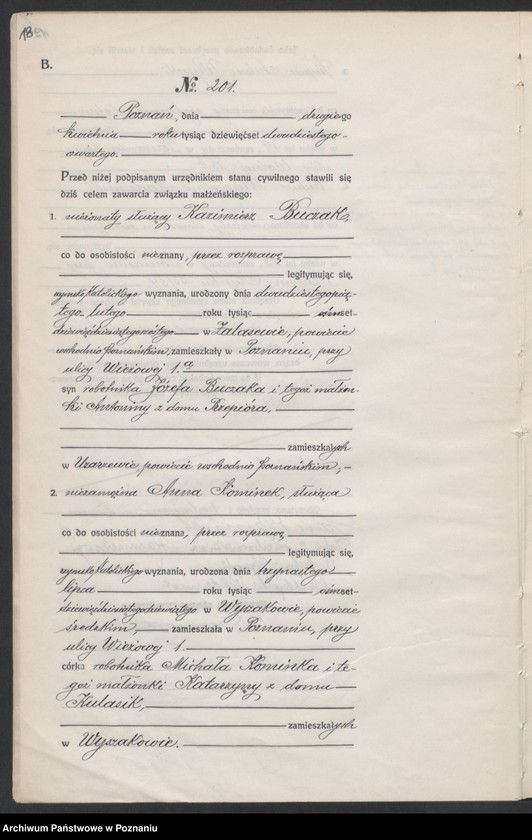 18
B.
No. 201.
Poznań, dnia drugiego
kwietnia roku tysiąc dziewięćset dwudziestego
czwartego.
Przed niżej podpisanym urzędnikiem stanu cywilnego stawili się
dziś celem zawarcia związku małżeńskiego:
1. nieżonaty służący Kazimierz Buczak,
co do osobistości nieznany, przez rozprawę
legitymując się,
rzymsko katolickiego wyznania, urodzony dnia dwudziestego pią-
tego lutego roku tysiąc ośmset-
dziewięćdziesiątego w Zalasewie, powiecie
wschodnio poznańskim, zamieszkały w Poznaniu, przy
ulicy Wieżowej 1.a
syn robotnika Józefa Buczaka i tegoż małżon-
ki Antoniny z domu Przepióra,
zamieszkałych
w Uzarzewie, powiecie wschodnio poznańskim,
2. niezamężna Anna Kominek, służąca
co do osobistości nieznana, przez rozprawę
legitymując się,
rzymsko katolickiego wyznania, urodzona dnia trzynastego
lipca roku tysiąc ośmset-
dziewięćdziesiątego dziewiątego w Wyszakowie, powiecie
średzkim, zamieszkała w Poznaniu, przy
ulicy Wieżowej 1.
córka robotnika Michała Kominka i te-
goż małżonki Katarzyny z domu
Kulasik,
zamieszkałych
w Wyszakowie.
Archiwum Państwowe w Poznaniu